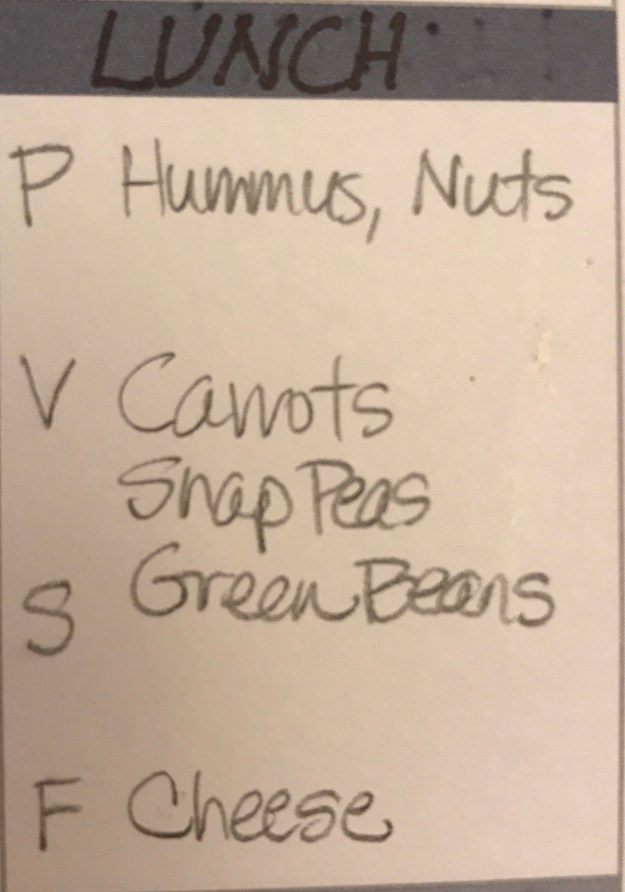 LUNCH
P Hummus, Nuts
V Carrots
Snap Peas
S Green Beans
F Cheese